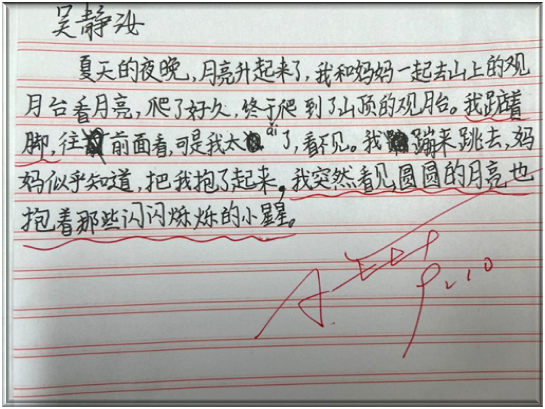 吴静汝
夏天的夜晚，月亮升起来了，我和妈妈一起去山上的观
月台看月亮，爬了好久，终于爬到了山顶的观月台。我踮着
脚，往前面看，可是我太ǎi了，看不见。我蹦来跳去，妈
妈似乎知道，把我抱了起来。我突然看见圆圆的月亮也
抱着那些闪闪烁烁的小星星。
A